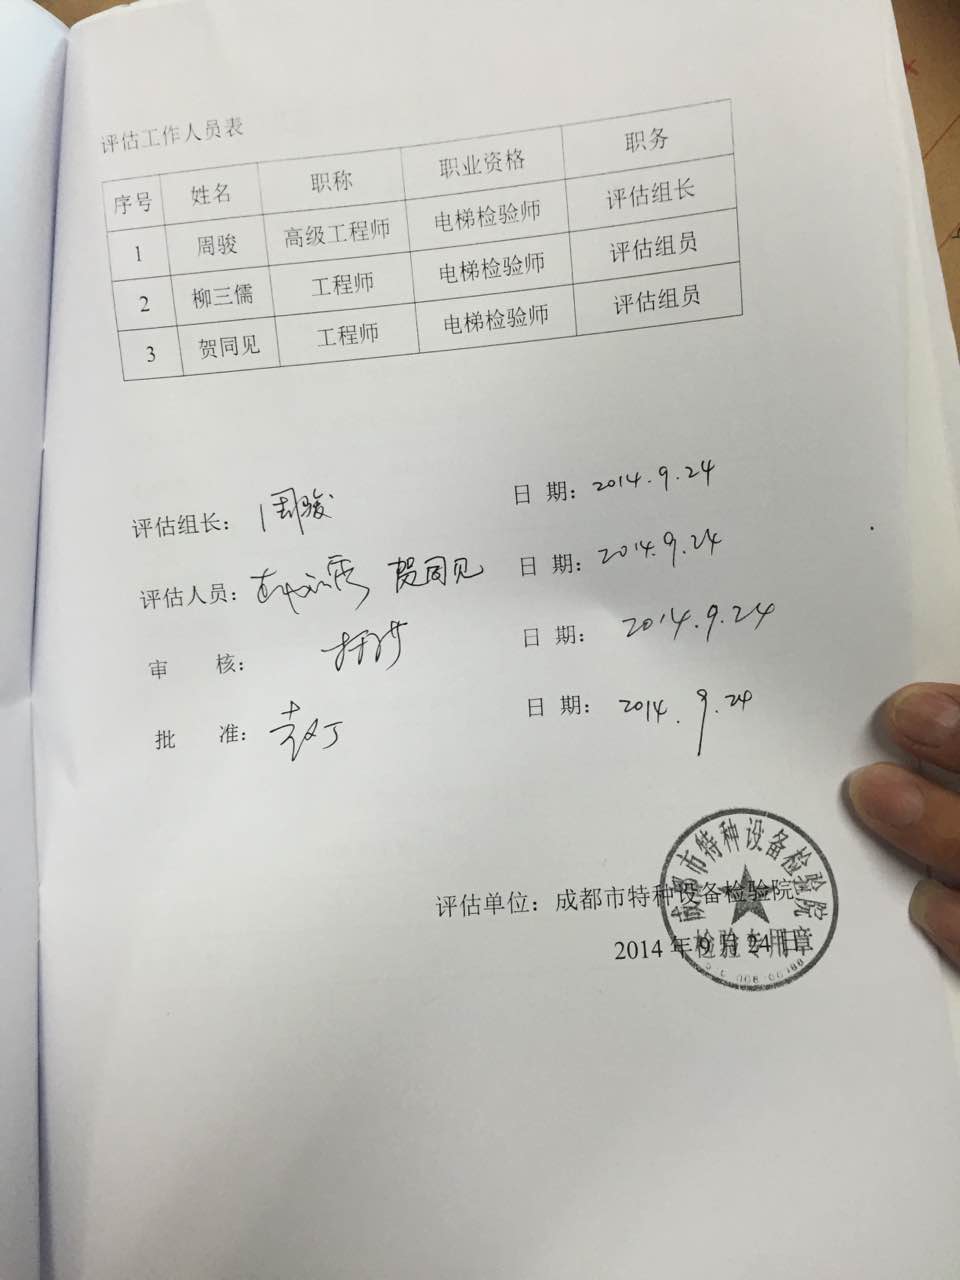 评估工作人员表
序号 姓名 职称 职业资格 职务
1 周骏 高级工程师 电梯检验师 评估组长
2 柳三儒 工程师 电梯检验师 评估组员
3 贺同见 工程师 电梯检验师 评估组员
评估组长： 周骏 日 期： 2014.9.24
评估人员： 贺同见 日 期： 2014.9.24
审 核： 日 期： 2014.9.24
批 准： 日 期： 2014.9.24
评估单位：成都市特种设备检验院
2014 年 9 月 24 日
成都市特种设备检验院
检验专用章